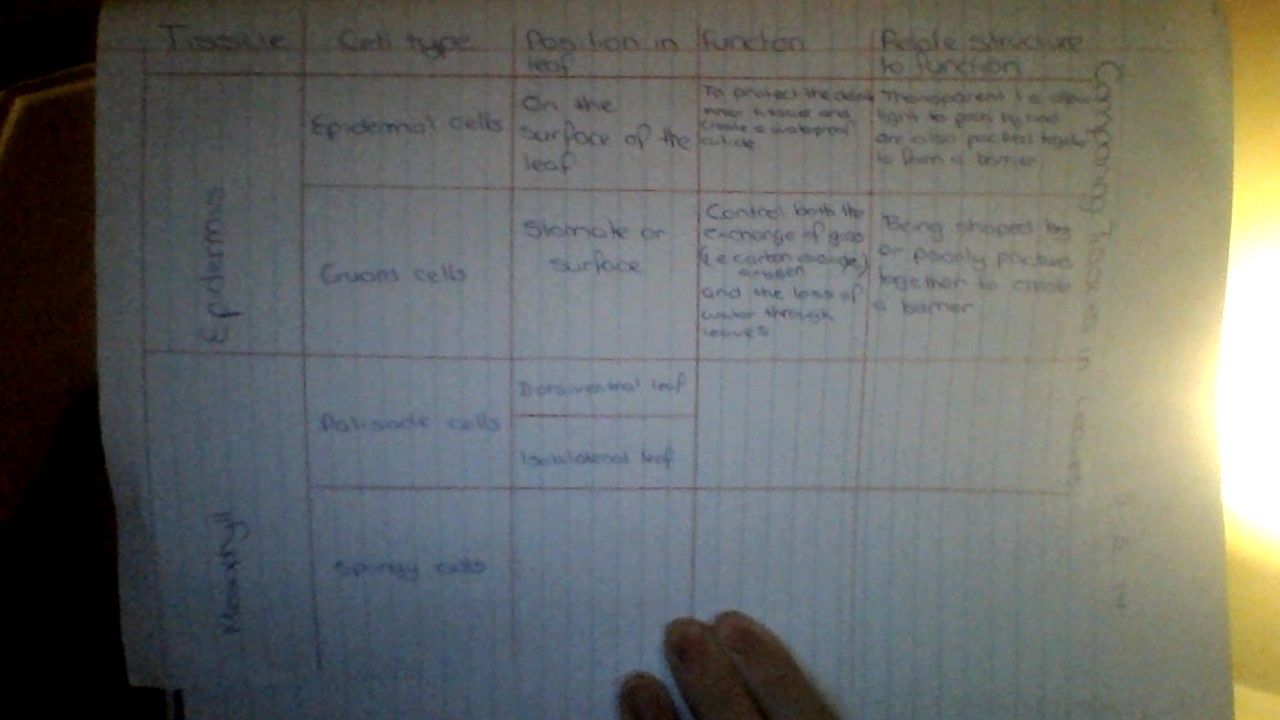 Tissue
Cell type
Position in
leaf
Function
Relate structure
to function
Epidermis
Epidermal cells
On the
surface of the
leaf
To protect the
inner tissue and
create a waterproof
cuticle
Transparent to allow
light to pass by and
are also packed
to form a barrier
Guard cells
Stomate or
surface
Control both the
exchange of gas
carbon dioxide,
oxygen
and the loss of
water through
leaves
Being shaped by
or poorly packed
together to create
a barrier
Mesophyll
Palisade cells
Dorsiventral leaf
Isobilateral leaf
Spongy cells
Comparing Tissues in